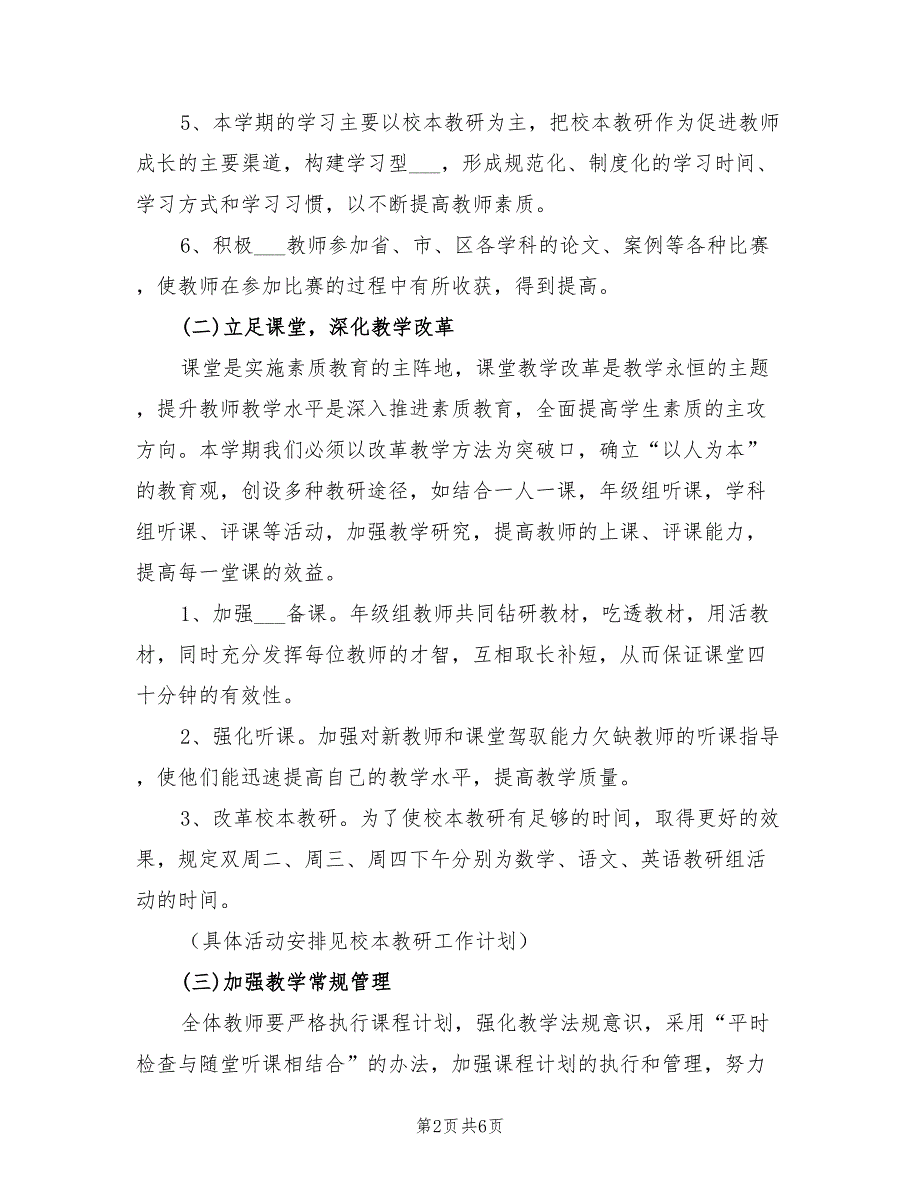 5、本学期的学习主要以校本教研为主，把校本教研作为促进教师
成长的主要渠道，构建学习型___，形成规范化、制度化的学习时间、
学习方式和学习习惯，以不断提高教师素质。
6、积极___教师参加省、市、区各学科的论文、案例等各种比赛
，使教师在参加比赛的过程中有所收获，得到提高。
(二)立足课堂，深化教学改革
课堂是实施素质教育的主阵地，课堂教学改革是教学永恒的主题
，提升教师教学水平是深入推进素质教育，全面提高学生素质的主攻
方向。本学期我们必须以改革教学方法为突破口，确立“以人为本”
的教育观，创设多种教研途径，如结合一人一课，年级组听课，学科
组听课、评课等活动，加强教学研究，提高教师的上课、评课能力，
提高每一堂课的效益。
1、加强___备课。年级组教师共同钻研教材，吃透教材，用活教
材，同时充分发挥每位教师的才智，互相取长补短，从而保证课堂四
十分钟的有效性。
2、强化听课。加强对新教师和课堂驾驭能力欠缺教师的听课指导
，使他们能迅速提高自己的教学水平，提高教学质量。
3、改革校本教研。为了使校本教研有足够的时间，取得更好的效
果，规定双周二、周三、周四下午分别为数学、语文、英语教研组活
动的时间。
（具体活动安排见校本教研工作计划）
(三)加强教学常规管理
全体教师要严格执行课程计划，强化教学法规意识，采用“平时
检查与随堂听课相结合”的办法，加强课程计划的执行和管理，努力
第2页共6页